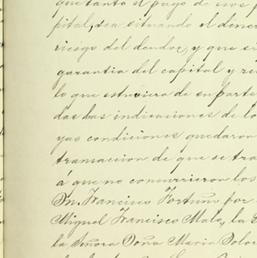 que tanto el pago de ese
pital, sea situando el dinero
riesgo del deudor, y que se
garantia del capital y re
lo que estuviera de su parte
das las indicaciones de lo
yas condiciones quedaron
transaccion de que se tra
á que no concurrieron los
Dn. Francisco Fortuño por
Miguel Francisco Malo, la
la Señora Doña Maria Dolor